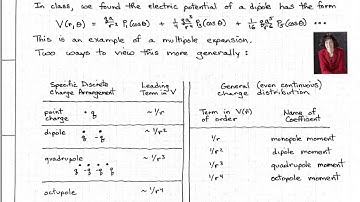 In class, we found the electric potential of a dipole has the form
V(r,θ) = P₁(cosθ) + P₃(cosθ) + P₅(cosθ) ...
This is an example of a multipole expansion.
Two ways to view this more generally:
Specific Discrete Charge Arrangement
Leading Term in V
point charge • q ~ 1/r
dipole ~ 1/r²
quadrupole ~ 1/r³
octupole ~ 1/r⁴
General (even continuous) charge distribution
Term in V(r) of order
Name of Coefficient
1/r monopole moment
1/r² dipole moment
1/r³ quadrupole moment
1/r⁴ octopole moment